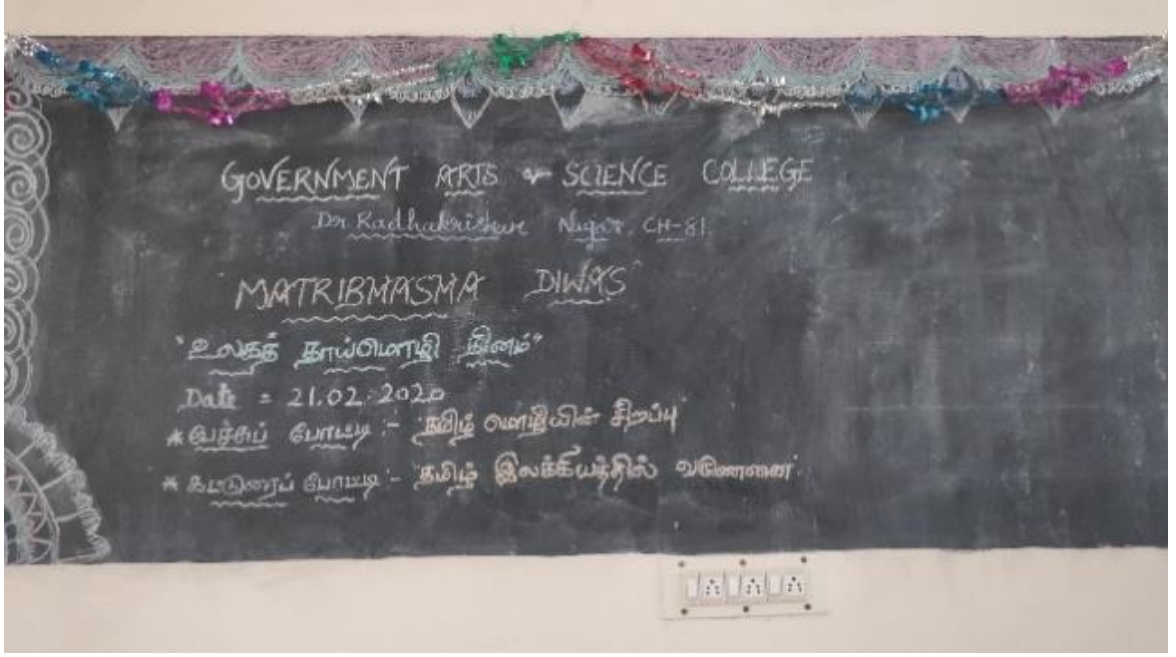 GOVERNMENT ARTS & SCIENCE COLLEGE
Dr. Radhakrishnan Nagar, CH-81.
MATRIBHASHA DIWAS
"உலகத் தாய்மொழி தினம்"
Date = 21.02.2020
* பேச்சுப் போட்டி :- 'தமிழ் மொழியின் சிறப்பு'
* கட்டுரைப் போட்டி :- 'தமிழ் இலக்கியத்தில் வர்ணனை'.